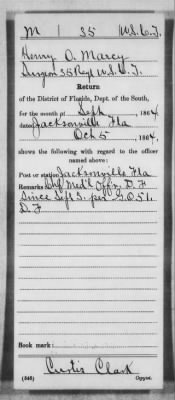 M | 35 | U.S.C.T.
Henry O. Marcy
Surgeon 35 Regt U.S.C.T.
Return
of the District of Florida, Dept. of the South,
for the month of Sept, 1864
dated Jacksonville Fla
Oct 5, 1864,
shows the following with regard to the officer
named above:
Post or station Jacksonville Fla
Remarks Chf Med'l Offr D. F
Since Sept 3. per G.O. 51.
D. F
Book mark:
Curtis Clark
(546) Copyist.